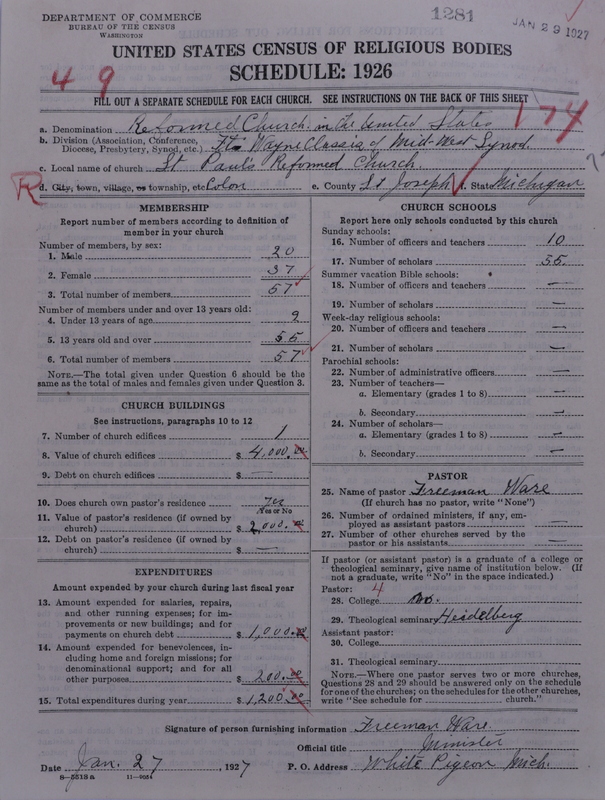 DEPARTMENT OF COMMERCE
BUREAU OF THE CENSUS
WASHINGTON
1281
JAN 29 1927
UNITED STATES CENSUS OF RELIGIOUS BODIES
SCHEDULE: 1926
49
FILL OUT A SEPARATE SCHEDULE FOR EACH CHURCH. SEE INSTRUCTIONS ON THE BACK OF THIS SHEET
174
a. Denomination Reformed Church in the United States
b. Division (Association, Conference, Diocese, Presbytery, Synod, etc.) Ft. Wayne Classis of Mid-West Synod.
c. Local name of church St Pauls Reformed Church
R
d. City, town, village, or township, etc Colon e. County St Joseph f. State Michigan
MEMBERSHIP
Report number of members according to definition of
member in your church
Number of members, by sex:
1. Male 20
2. Female 37
3. Total number of members 57
Number of members under and over 13 years old:
4. Under 13 years of age 9
5. 13 years old and over
6. Total number of members 57
NOTE.—The total given under Question 6 should be the
same as the total of males and females given under Question 3.
CHURCH BUILDINGS
See instructions, paragraphs 10 to 12
7. Number of church edifices 1
8. Value of church edifices $ 4,000.00
9. Debt on church edifices $ —
10. Does church own pastor's residence Yes
Yes or No
11. Value of pastor's residence (if owned by
church) $ 2,000.00
12. Debt on pastor's residence (if owned by
church) $ —
EXPENDITURES
Amount expended by your church during last fiscal year
13. Amount expended for salaries, repairs,
and other running expenses; for im-
provements or new buildings; and for
payments on church debt $ 1,000.00
14. Amount expended for benevolences, in-
cluding home and foreign missions; for
denominational support; and for all
other purposes $ 200.00
15. Total expenditures during year $ 1,200.00
CHURCH SCHOOLS
Report here only schools conducted by this church
Sunday schools:
16. Number of officers and teachers 10
17. Number of scholars 55.
Summer vacation Bible schools:
18. Number of officers and teachers —
19. Number of scholars —
Week-day religious schools:
20. Number of officers and teachers —
21. Number of scholars —
Parochial schools:
22. Number of administrative officers —
23. Number of teachers—
a. Elementary (grades 1 to 8) —
b. Secondary —
24. Number of scholars—
a. Elementary (grades 1 to 8) —
b. Secondary —
PASTOR
25. Name of pastor Freeman Ware
(If church has no pastor, write "None")
26. Number of ordained ministers, if any, em-
ployed as assistant pastors —
27. Number of other churches served by the
pastor or his assistants —
If pastor (or assistant pastor) is a graduate of a college or
theological seminary, give name of institution below. (If
not a graduate, write "No" in the space indicated.)
Pastor: 4
28. College no.
29. Theological seminary Heidelberg
Assistant pastor:
30. College
31. Theological seminary
NOTE.—Where one pastor serves two or more churches,
Questions 28 and 29 should be answered only on the schedule
for one of the churches; on the schedules for the other churches,
write "See schedule for church."
Signature of person furnishing information Freeman Ware
Official title Minister
Date Jan. 27, 1927 P. O. Address White Pigeon Mich.
8—5313a 11—9034